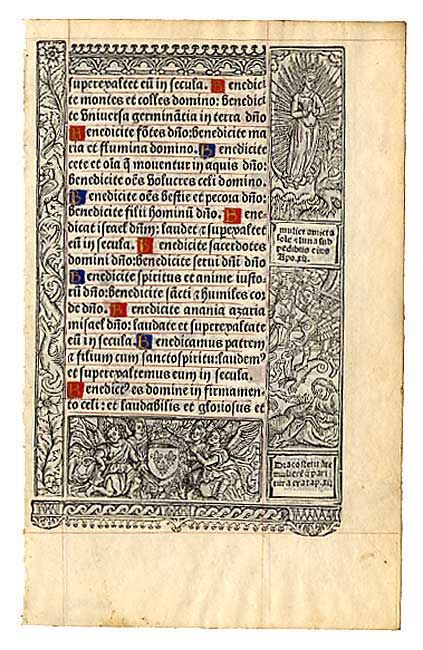 superexaltet eū in secula. Benedici
te montes et colles domino: benedic
te universa germinātia in terra dn̄o
Benedicite fōtes dn̄o: benedicite ma
ria et flumina domino. Benedicite
cete et oīa q̄ moventur in aquis dn̄o:
benedicite oēs volucres celi domino.
Benedicite oēs bestie et pecora dn̄o:
benedicite filii hominū dn̄o. Bene
dicat israel dn̄m: laudet ⁊ supexaltet
eū in secula. Benedicite sacerdotes
domini dn̄o: benedicite servi dn̄i dn̄o
Benedicite spiritus et anime iusto⁊
tū dn̄o: benedicite sācti ⁊ humiles cor
de dn̄o. Benedicite anania azaria
misael dn̄o: laudate et superexaltate
eū in secula. Benedicamus patrem
⁊ filium cum sancto spiritu: laudemꝰ
et superexaltemus eum in secula.
Benedicꝰ es domine in firmamen
to celi: et laudabilis et gloriosus et
mulier amicta
sole ⁊ luna sub
pedibus eius
Apo. xii.
Draco stetit āte
mulierē q̄ pari
tura erat ap. xii